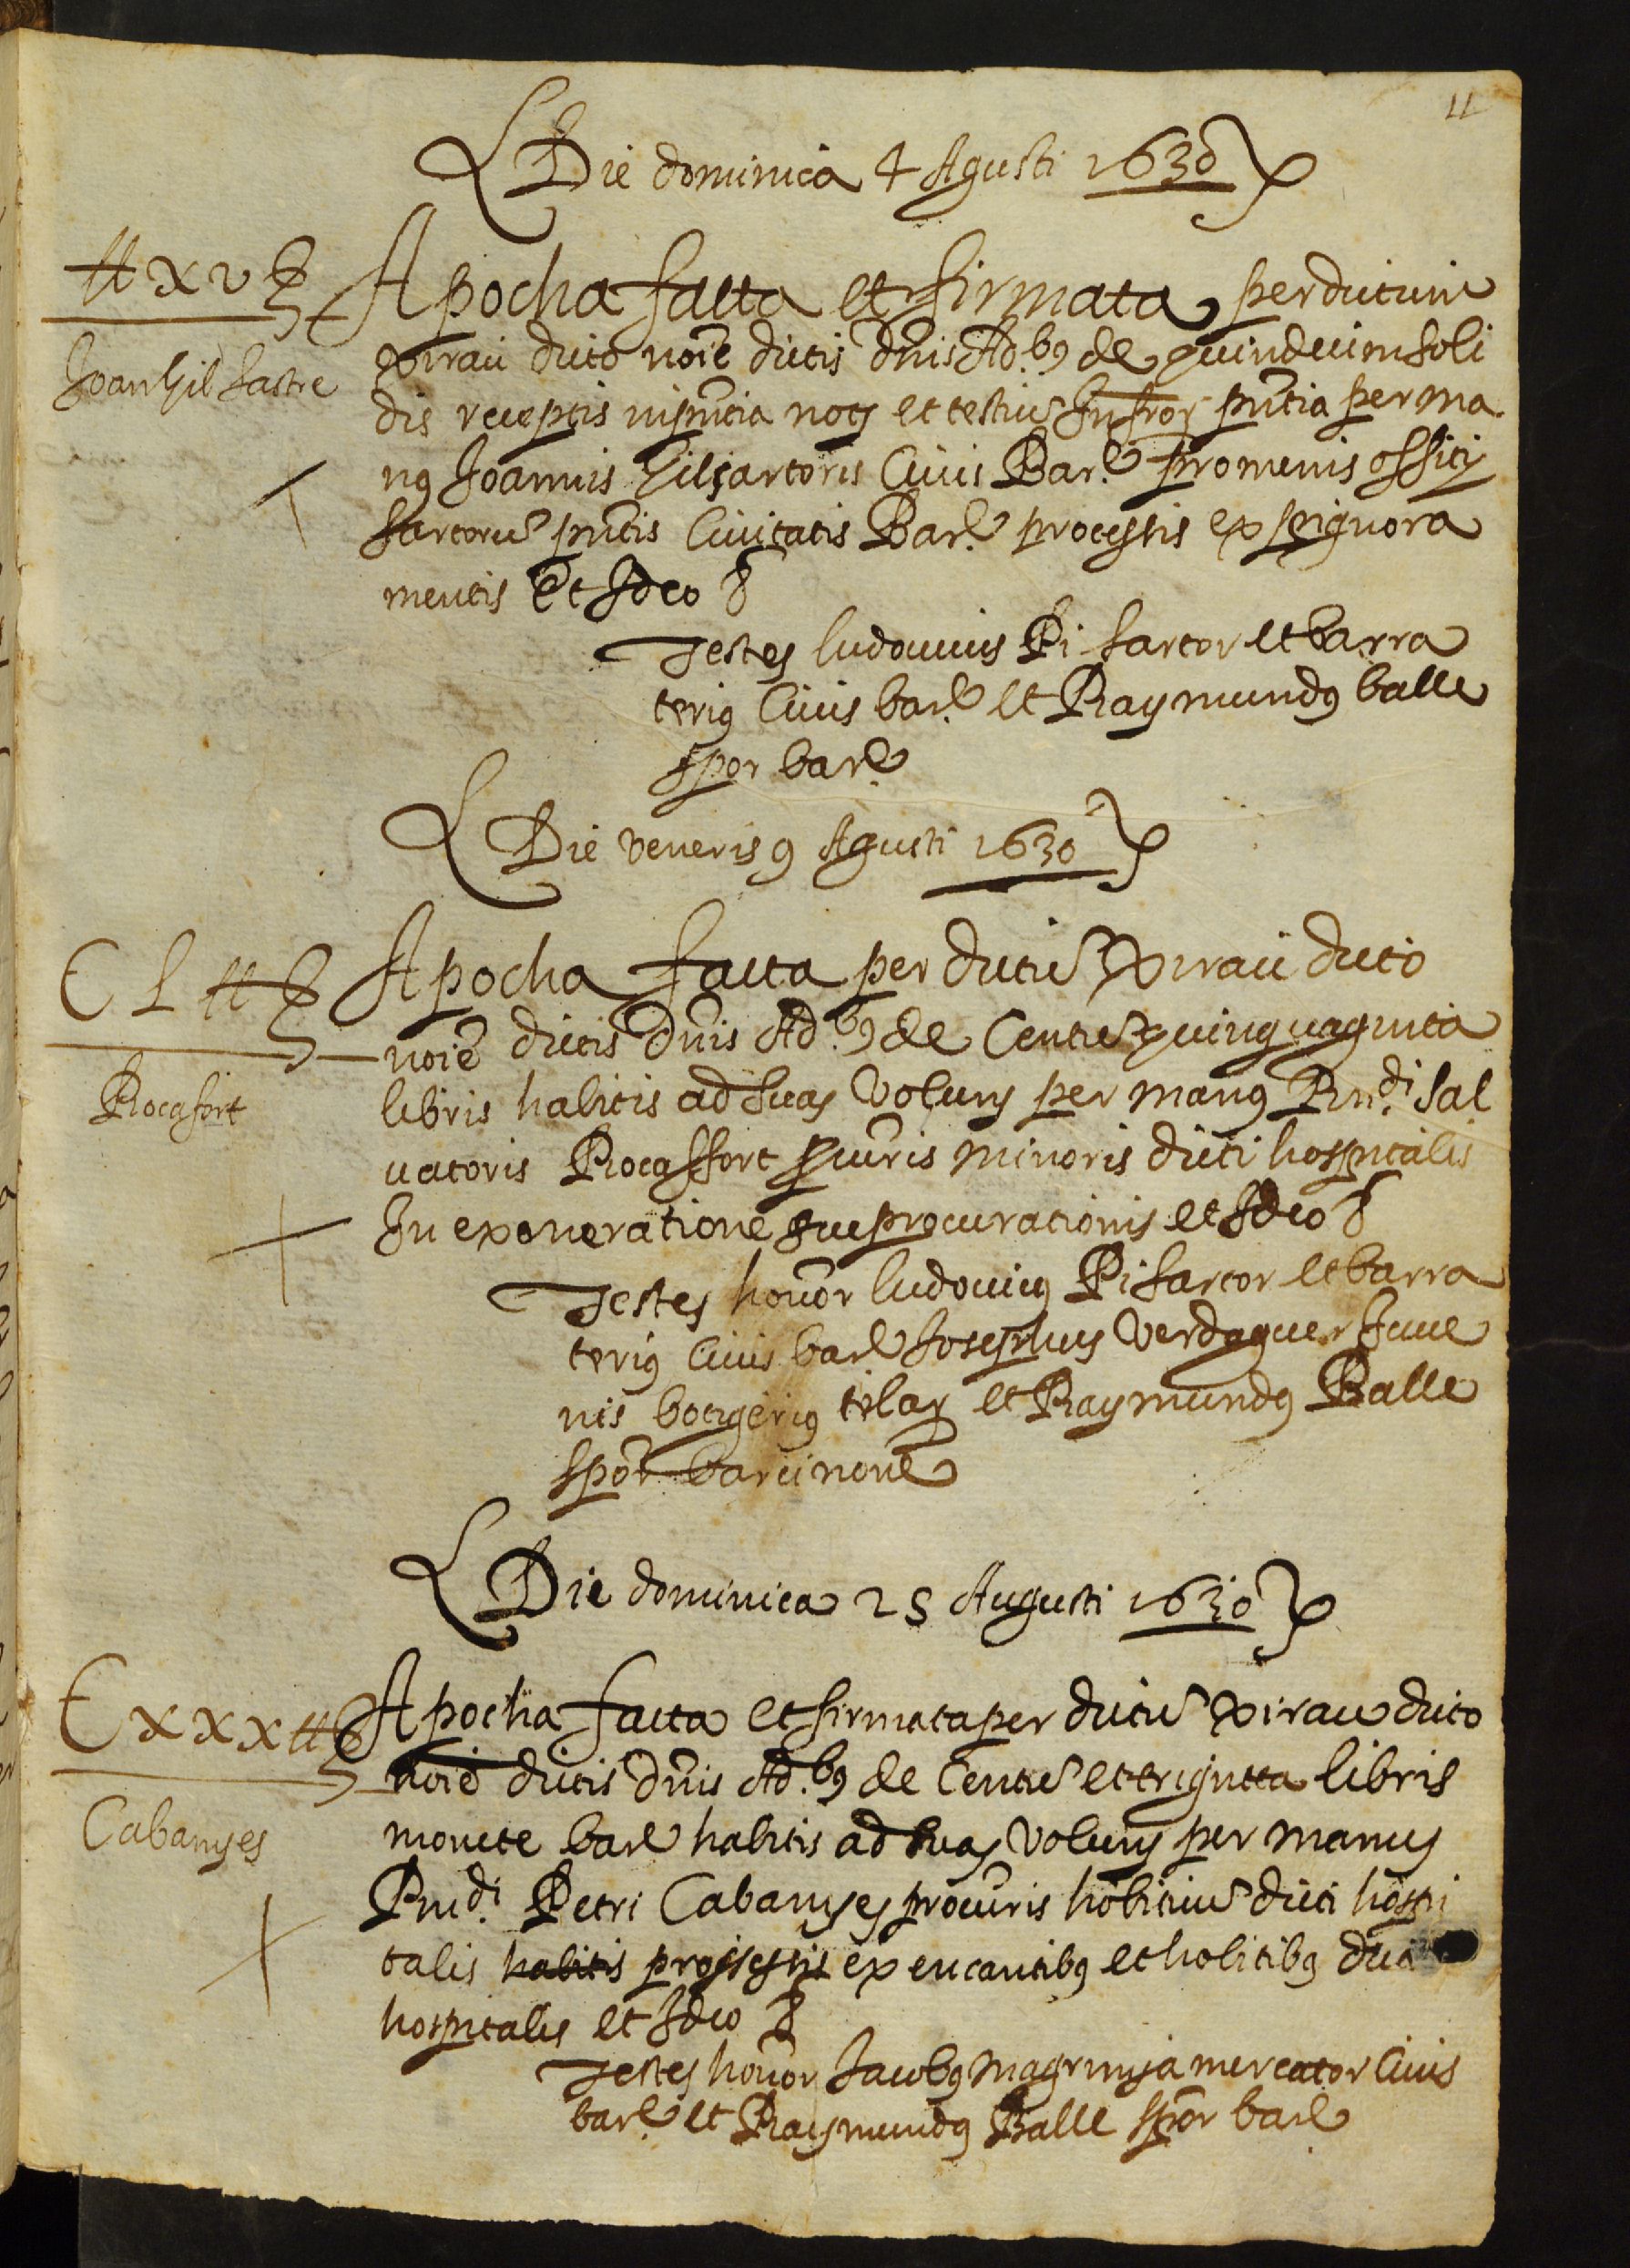 11
Die dominica 4 Agusti 1630
xv
Joan Gil sastre
Apocha facta et firmata per dictum
Xirau dicto noiē dictis dn̄is Ad.b9 de quindecim soli
dis receptis in pn̄tia not et testiū infror pn̄tia per ma
n9 Joannis Gil sartoris Civis Bar.e pro menis officij
sartorū pn̄tis Civitatis Bar.e processis ex pignora
mentis Et Ideo &
Testes ludovicus Pi sartor et barra
teri9 Civis bar.e et Raymund9 balle
spor bar.e
Die veneris 9 Agusti 1630
CL
Rocafort
Apocha facta per dictū Xirau dicto
noiē dictis dn̄is Ad.b9 de Centū quinquaginta
libris habitis ad suas voluns per man9 Rn.di Sal
vatoris Rocaffort pcuris minoris dicti hospitalis
In exoneratione sue procurationis et Ideo &
Testes honor ludovic9 Pi sartor et barra
teri9 Civis bare Josephus Verdaguer Juve
nis botigeri9 telar et Raymund9 Balle
spor barcinone
Die dominica 25 Augusti 1630
Cxxx
Cabanyes
Apocha facta et firmata per dictū Xirau dicto
noiē dictis dn̄is Ad.b9 de Centū et triginta libris
monete bare habitis ad suas voluns per manus
Rn.di Petri Cabanyes procuris hobituū dicti hospi
talis habitis processis ex encantib9 et holitib9 dicti
hospitalis et Ideo &
Testes honor Jacob9 Magrinya mercator Civis
bar.e et Raymund9 Balle spor bare